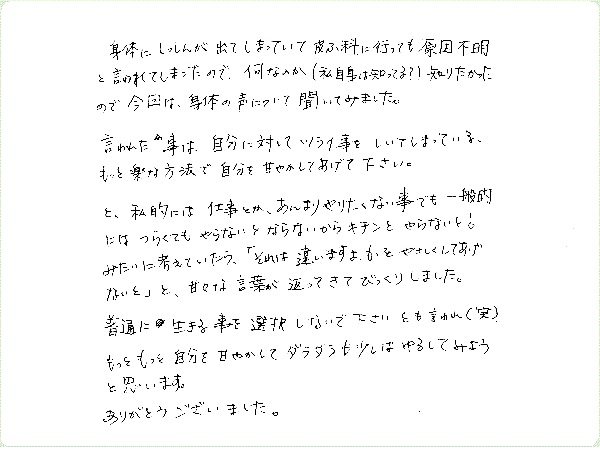 身体にしっしんが出てしまっていて皮ふ科に行っても原因不明
と言われてしまったので、何なのか(私自身は知ってる?)知りたかった
ので今回は、身体の声について聞いてみました。
言われた事は、自分に対してツライ事をしいてしまっている、
もっと楽な方法で自分を甘やかしてあげて下さい。
と、私的には仕事とか、あんまりやりたくない事でも一般的
にはつらくてもやらないとならないからキチンとやらないと!
みたいに考えていたら、「それは違いますよ、もっとやさしくしてあげ
ないと」と、甘々な言葉が返ってきてびっくりしました。
普通に生きる事を選択しないで下さいとも言われ(笑)
もっともっと自分を甘やかしてダラダラも少しはゆるしてみよう
と思います。
ありがとうございました。